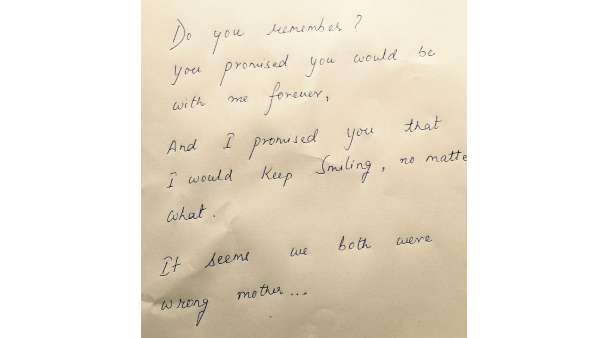 Do you remember?
You promised you would be
with me forever,
And I promised you that
I would Keep Smiling, no matte
what.
It seems we both were
wrong mother...